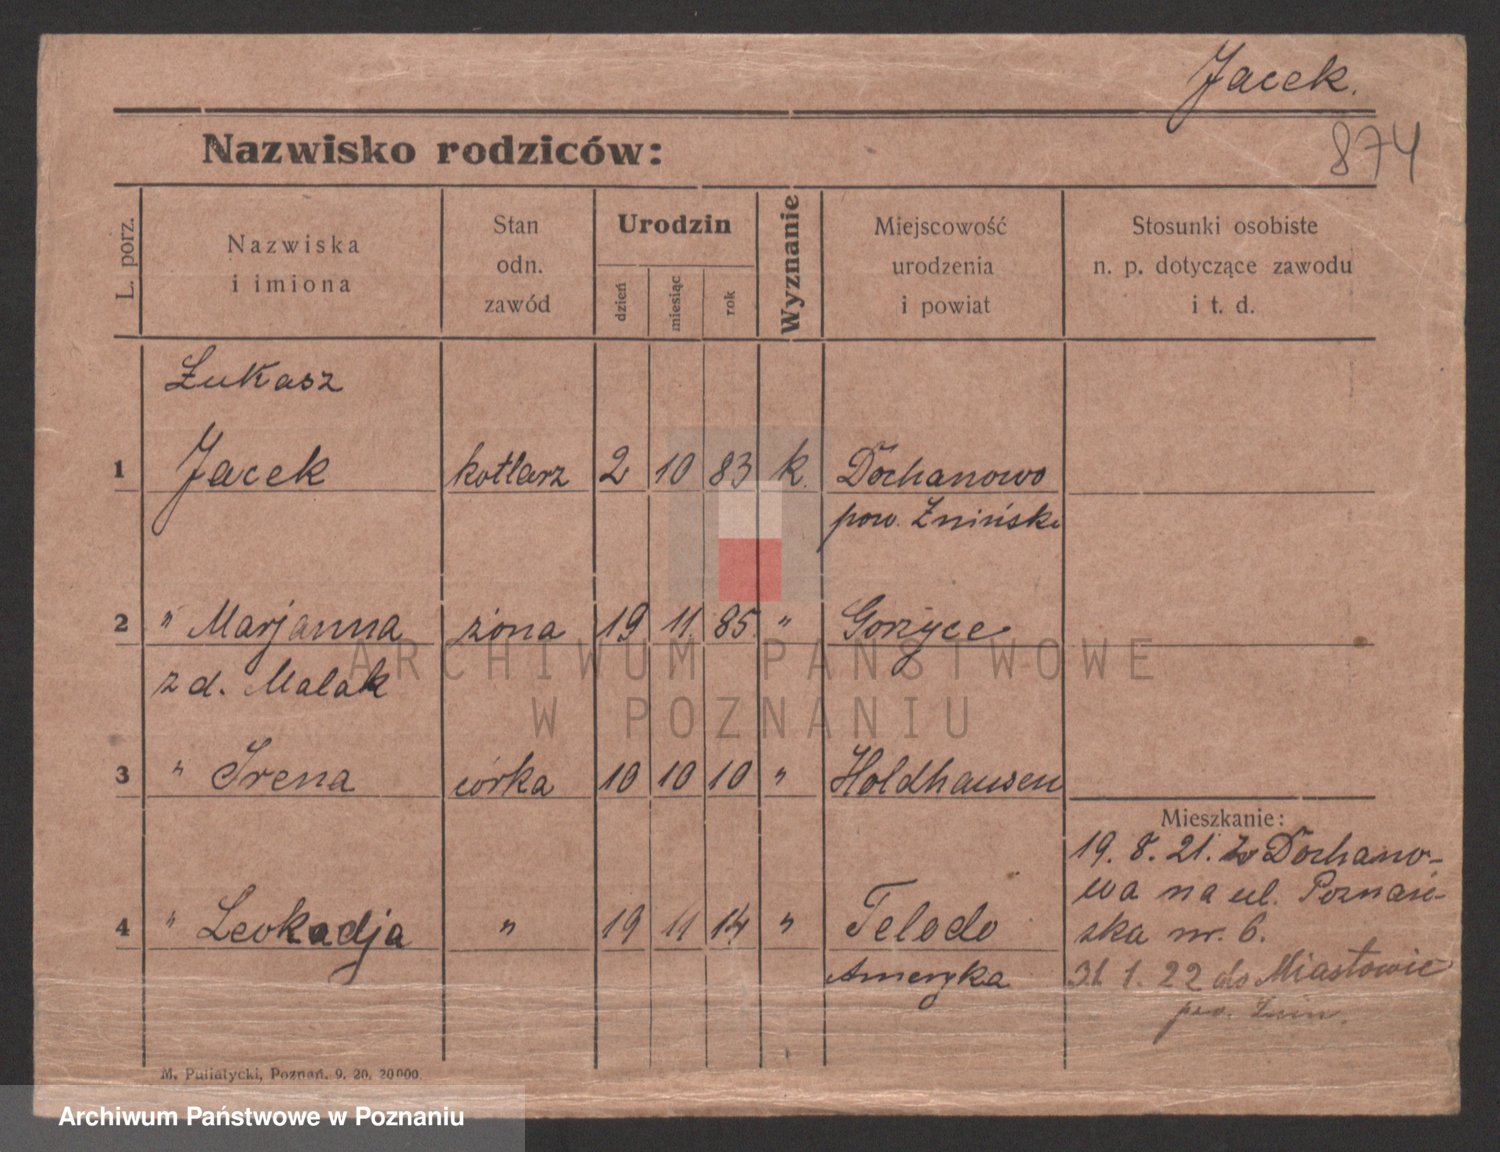 Jacek.
874
Nazwisko rodziców:
L. porz.
Nazwiska
i imiona
Stan
odn.
zawód
Urodzin
dzień
miesiąc
rok
Wyznanie
Miejscowość
urodzenia
i powiat
Stosunki osobiste
n. p. dotyczące zawodu
i t. d.
Łukasz
1 Jacek kotlarz 2 10 83 k. Dochanowo
pow. Żniński
2 " Marjanna żona 19 11 85 " Gorzyce
z d. Malak
3 " Irena córka 10 10 10 " Holdhausen
Mieszkanie:
19. 8. 21. z Dochano-
wa na ul. Poznań-
ska nr. 6.
4 " Leokadja " 19 11 14 " Teledo
Ameryka
31 1. 22 do Miastowic
pow. Żnin.
M. Putiatycki, Poznań. 9. 20. 20000.
ARCHIWUM PAŃSTWOWE
W POZNANIU
Archiwum Państwowe w Poznaniu